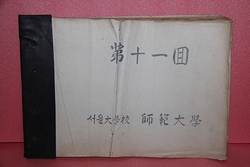 第十一回
서울大學校 師範大學